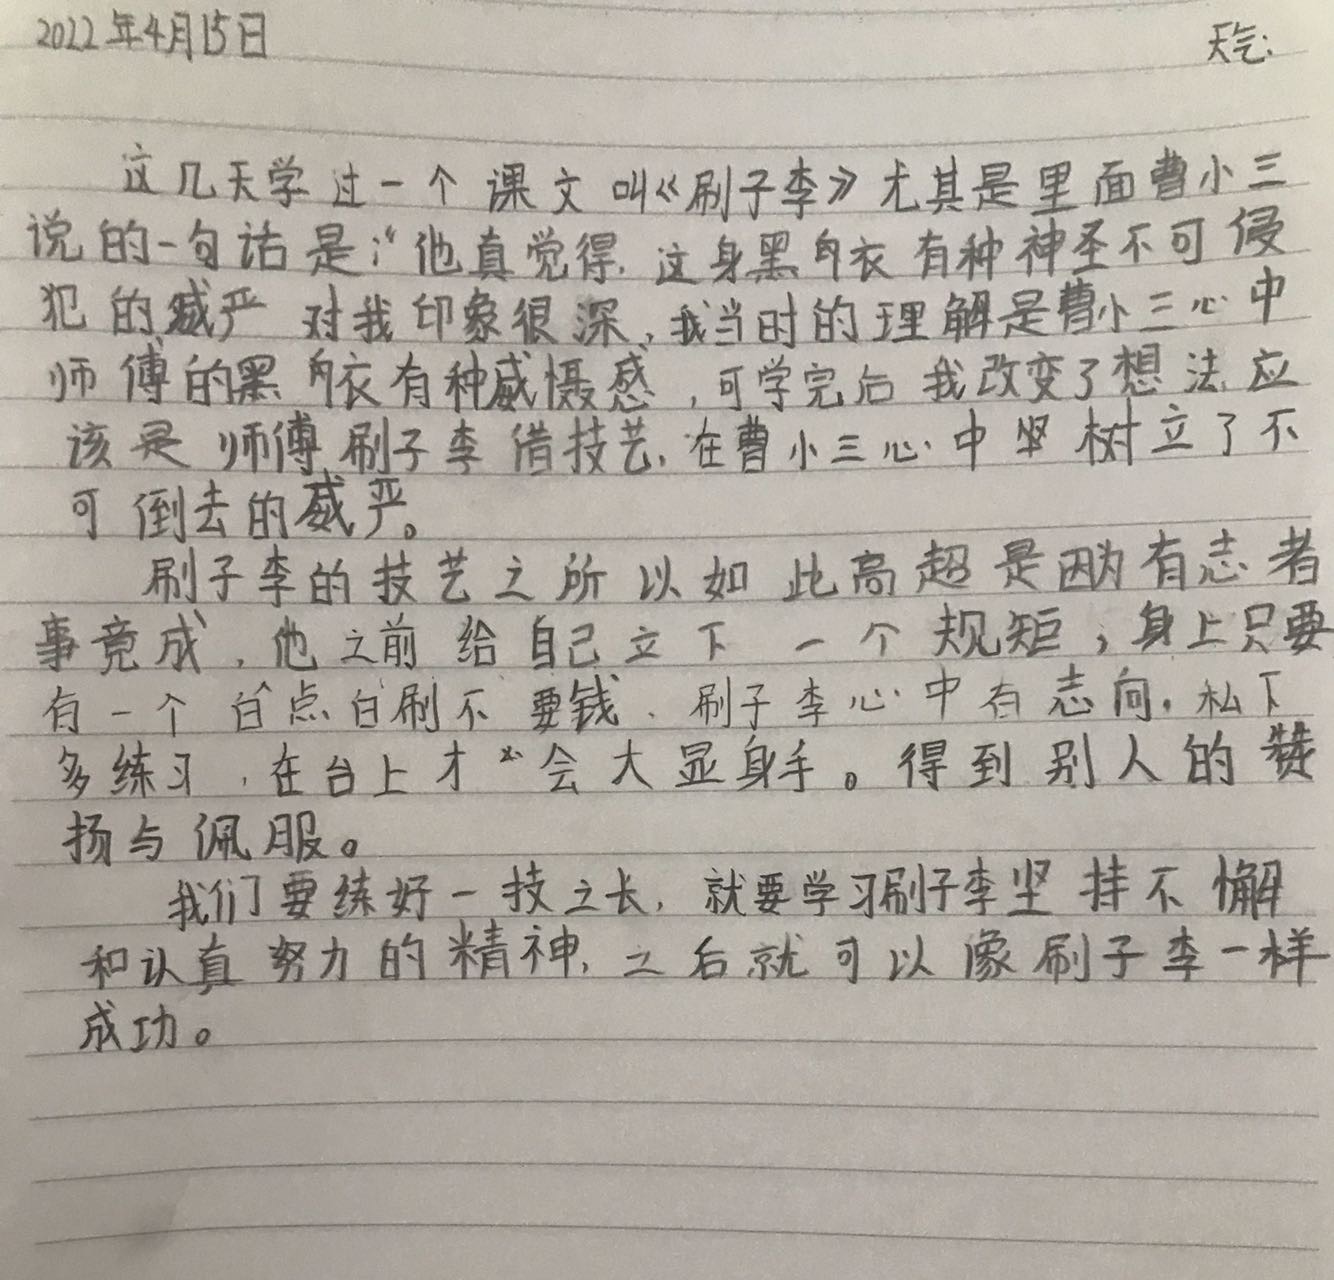 2022年4月15日 天气:
这几天学过一个课文叫《刷子李》尤其是里面曹小三
说的一句话是:“他真觉得,这身黑衣有种神圣不可侵
犯的威严 对我印象很深,我当时的理解是曹小三心中
师傅的黑衣有种威慑感,可学完后我改变了想法应
该是师傅刷子李借技艺,在曹小三心中坚树立了不
可倒去的威严。
刷子李的技艺之所以如此高超是因为有志者
事竟成,他之前给自己立下一个规矩,身上只要
有一个白点白刷不要钱、刷子李心中有志向,私下
多练习,在台上才会大显身手。得到别人的赞
扬与佩服。
我们要练好一技之长,就要学习刷子李坚持不懈
和认真努力的精神,之后就可以像刷子李一样
成功。